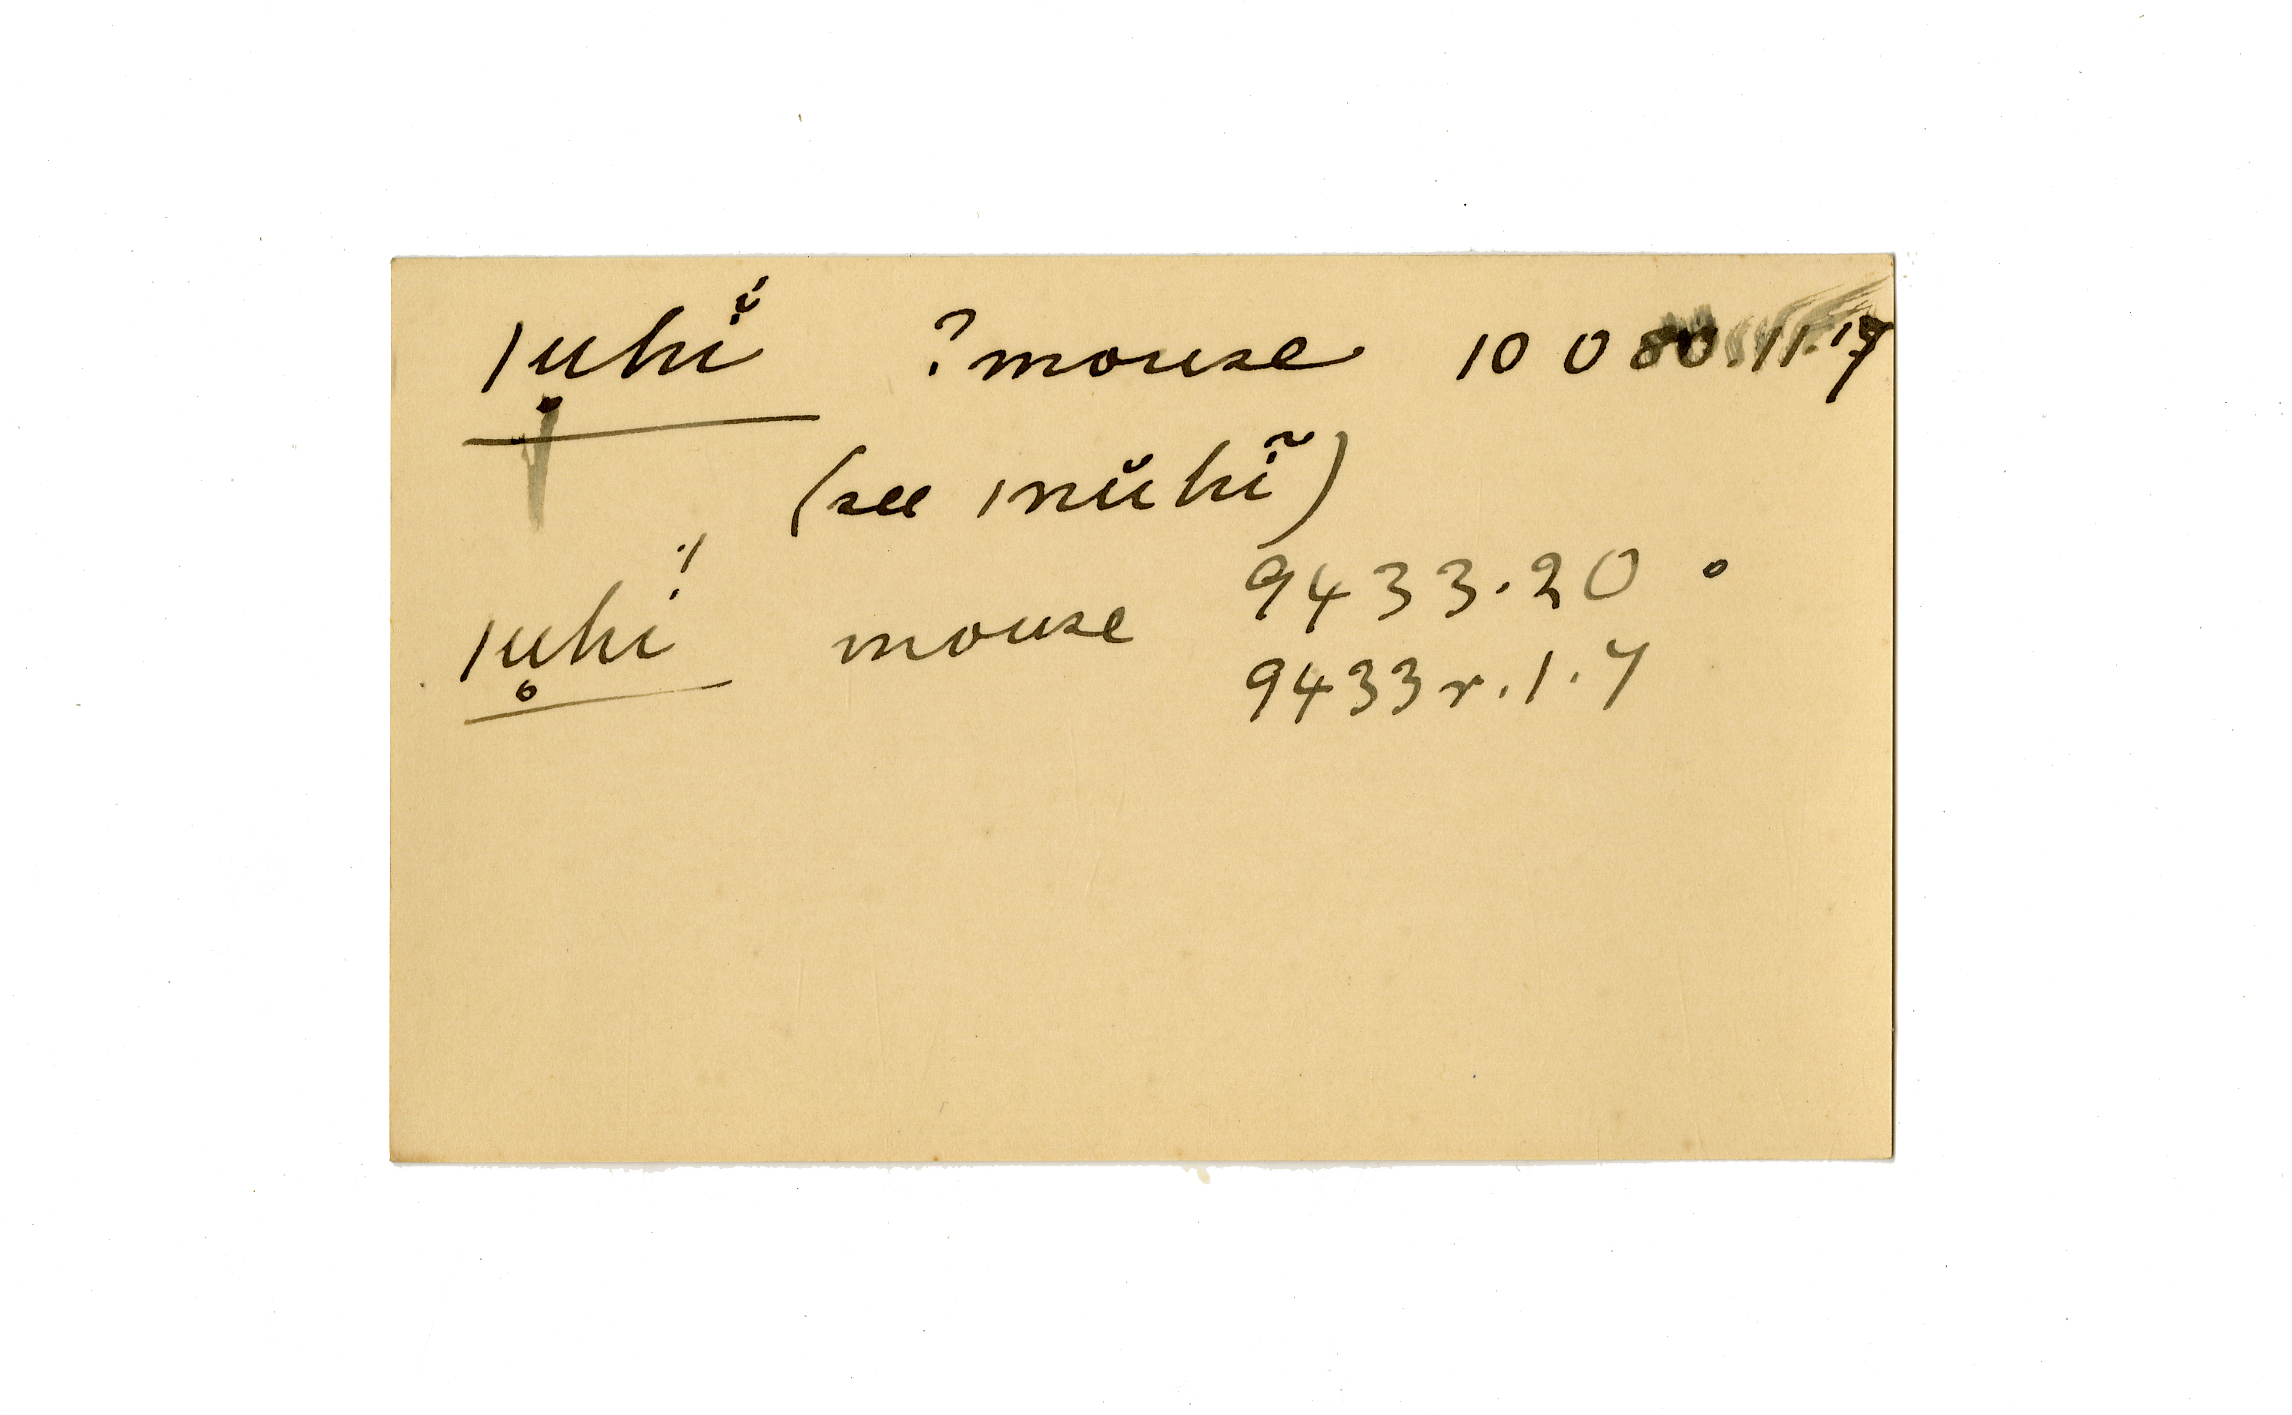 ıu̥hĭ̯́ ?mouse 10 0 80.11.17
(see ınŭhĩ)
ıu̥hí mouse 9433.20 o
9433r.1.7